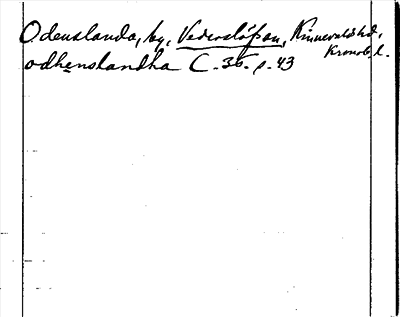 Odenslanda, by, Vederslöfs sn, Kinnevalds hd,
Kronob. l.
odhenslandha C. 35. p. 43